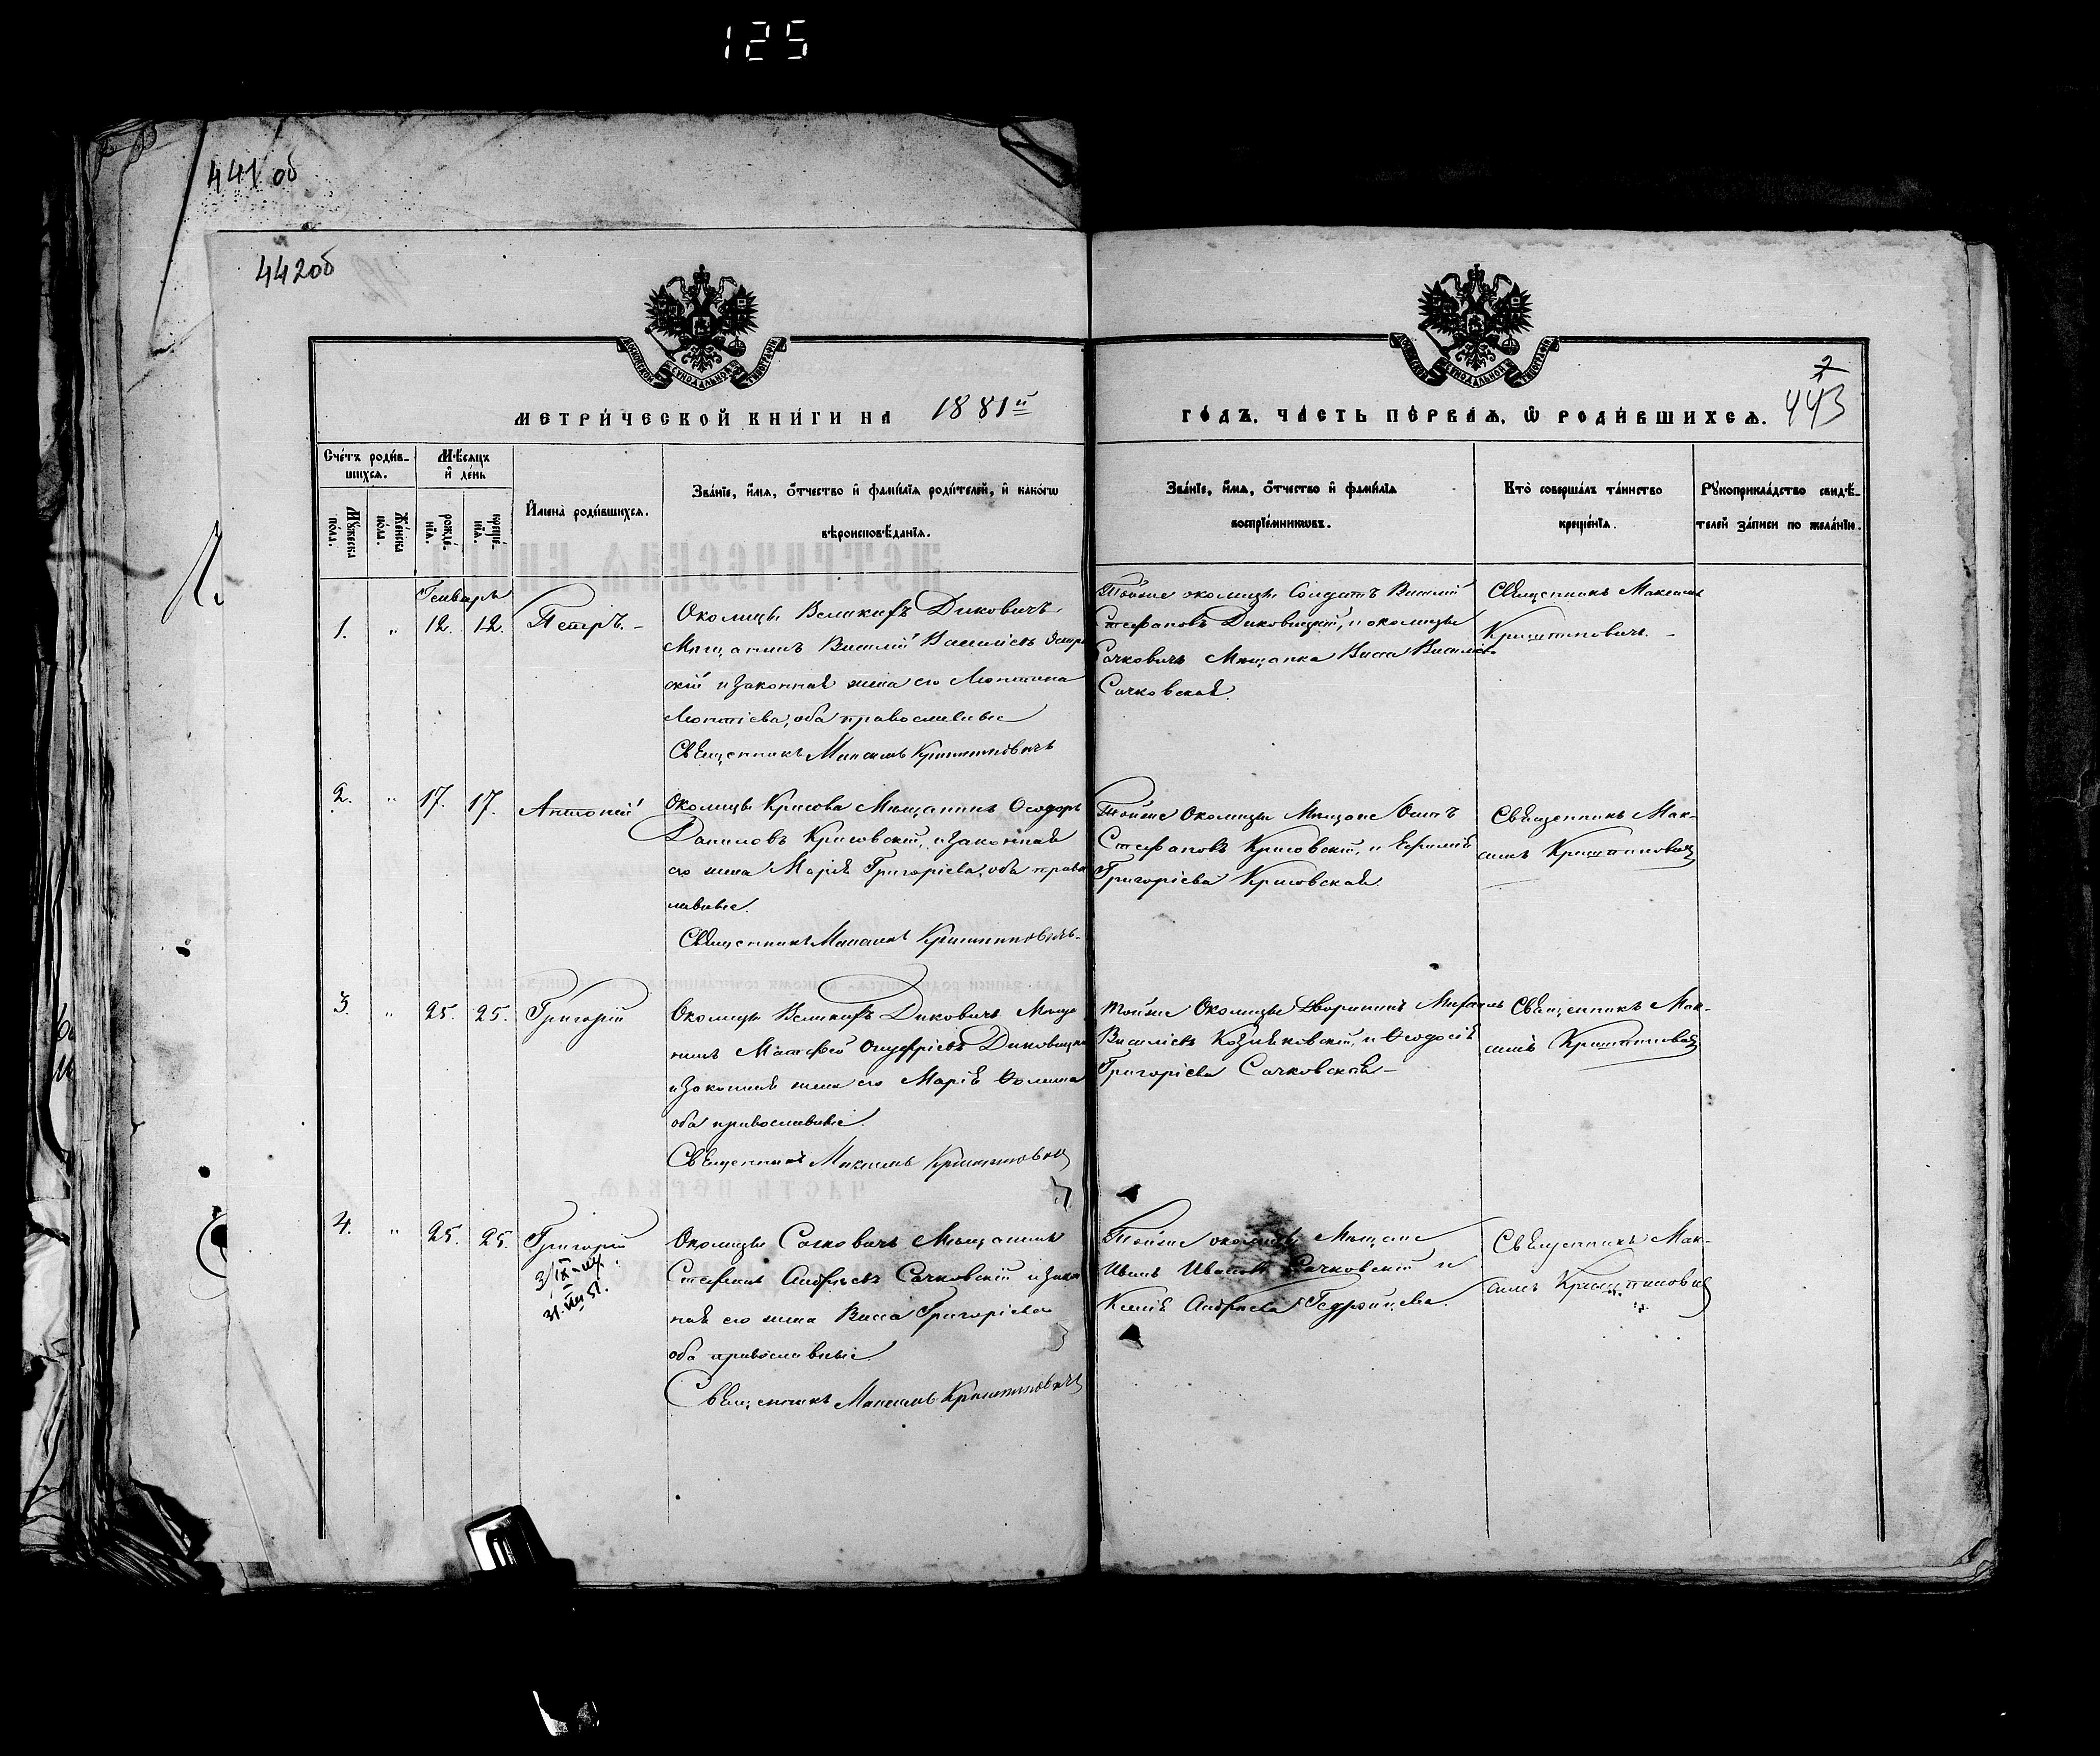 125
441 об
442об
МОСКОВСКОЙ СѴНОДАЛЬНОЙ ТИПОГРАФІИ
МОСКОВСКОЙ СѴНОДАЛЬНОЙ ТИПОГРАФІИ
2
443
МЕТРИ́ЧЕСКОЙ КНИ́ГИ НА 1881й
ГО́ДЪ. ЧА́СТЬ ПЕ́РВАѦ, Ѡ РОДИ́ВШИХСѦ.
Сче́тъ роди́в-
шихсѧ.
Мꙋ́жеска по́ла.
Же́нска по́ла.
Мѣ́сѧцъ
и҆ де́нь
рожде́-
нїѧ.
креще́-
нїѧ.
И҆мена̀ роди́вшихсѧ.
Зва́нїе, и҆́мѧ, ѻ҆́тчество и҆ фами́лїѧ роди́телей, и҆ како́гѡ
вѣроисповѣ́данїѧ.
Зва́нїе, и҆́мѧ, ѻ҆́тчество и҆ фами́лїѧ
воспрїе́мникѡвъ.
Кто̀ соверша́лъ та́инство
креще́нїѧ.
Рꙋкоприкла́дство свидѣ́-
телей за́писи по жела́нїю.
Генварь
1. " 12. 12. Петръ. -
Околицы Великихъ Диковичъ
Мѣщанинъ Василій Васильевъ
скій и законная жена его
оба православные
Священникъ Максимъ Криштиновичъ
Тойже околицы Солдатъ Василій
Стефановъ Диковицкій, и околицы
Сачковичъ Мѣщанка Васса Васильева
Сачковская.
Священникъ Максимъ
Криштиновичъ. -
2. " 17. 17. Антоній
Околицы Крисова Мѣщанинъ Ѳеодоръ
Даниловъ Крисовскій, и законная
его жена Марія Григоріева, оба право
славные.
Священникъ Максимъ Криштиновичъ.
Тойже Околицы Мѣщане Осипъ
Стефановъ Крисовскій, и Евфимія
Григоріева Крисовская.
Священникъ Мак-
симъ Криштиновичъ
3. " 25. 25. Григорій
Околицы Великихъ Диковичъ Мѣща
нинъ Матфей Онуфріевъ Диковицкій
и законная жена его Марія Ѳомина
оба православные.
Священникъ Максимъ Криштиновичъ
Тойже Околицы Дворянинъ Михаилъ
Васильевъ Козляковскій, и Ѳеодосія
Григоріева Сачковская -
Священникъ Мак-
симъ Криштиновичъ
4. " 25. 25. Григорій
31.VIII 51.
Околицы Сачковичъ Мѣщанинъ
Стефанъ Андреевъ Сачковскій и закон
ная его жена Васса Григоріева
оба православные.
Священникъ Максимъ Криштиновичъ
Тойже околицы Мѣщане
Иванъ Ивановъ Сачковскій и
Ксенія Андреева
Священникъ Мак-
симъ Криштиновичъ